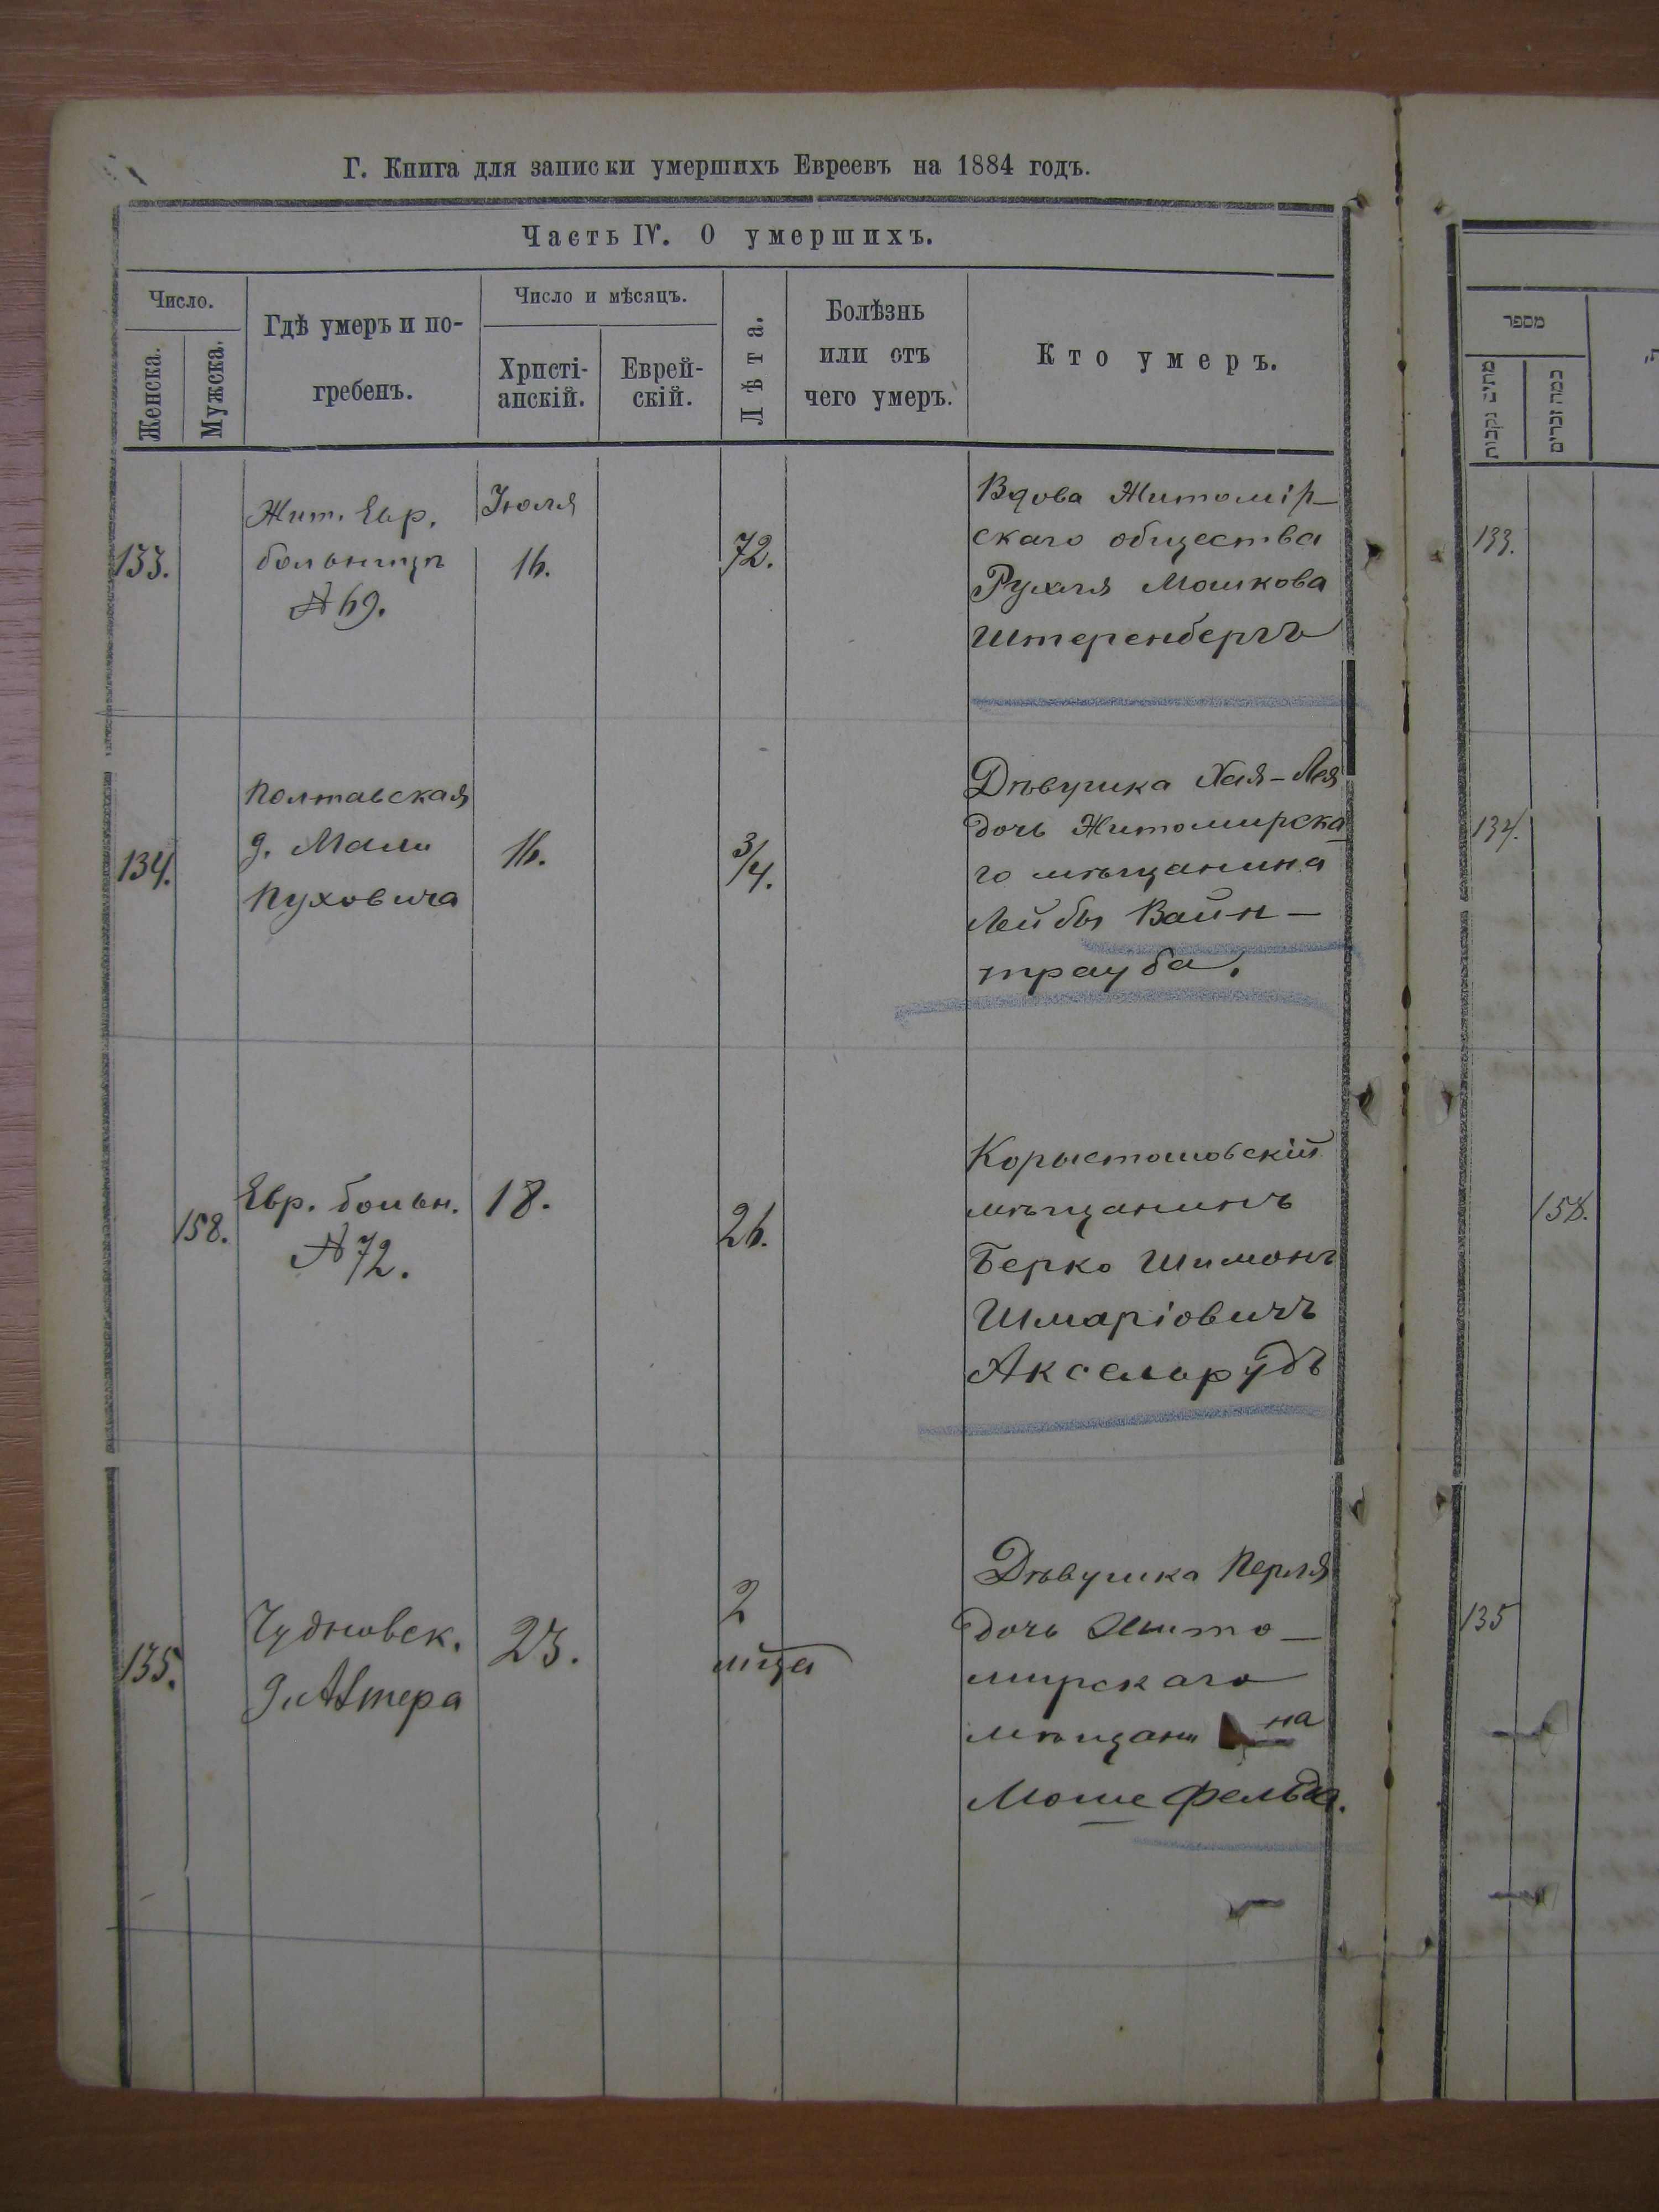 Г. Книга для записки умершихъ Евреевъ на 1884 годъ.
Часть IV. О умершихъ.
Число.
Женска.
Мужска.
Гдѣ умеръ и по-
гребенъ.
Число и мѣсяцъ.
Христі-
анскій.
Еврей-
скій.
Лѣта.
Болѣзнь
или отъ
чего умеръ.
Кто умеръ.
133.
Жит. Евр.
больницѣ
№ 69.
Іюля
16.
72.
Вдова Житомір-
скаго общества
Рухля Мошкова
Штеренбергъ
134.
Полтавская
д. Мали
Пуховича
16.
3/4.
Дѣвушка Хая-Лея
дочь Житомирска-
го мѣщанина
Лейбы Вайн-
трауба.
158.
Евр. больн.
№ 72.
18.
26.
Коростышовскій
мѣщанинъ
Берко Шимонъ
Шмаріовичъ
Аксельрудъ
135.
Чудновск.
д. Альтера
23.
2
м-ца
Дѣвушка Перля
дочь Жито-
мирскаго
мѣщани на
Моше Фельда.
מספר
מתים נקבות
כמה זכרים
133.
134.
158.
135